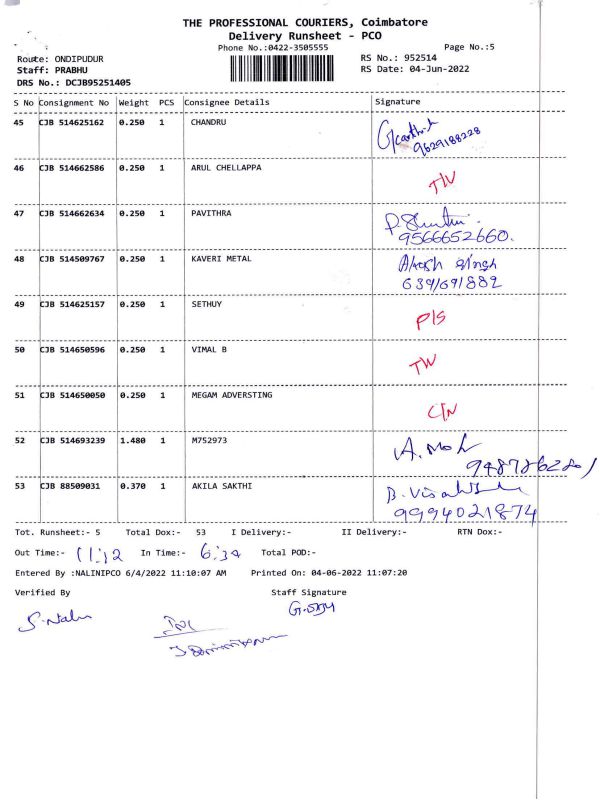 THE PROFESSIONAL COURIERS, Coimbatore
Delivery Runsheet - PCO
Phone No.:0422-3505555 Page No.:5
Route: ONDIPUDUR RS No.: 952514
Staff: PRABHU RS Date: 04-Jun-2022
DRS No.: DCJB95251405
S No Consignment No Weight PCS Consignee Details Signature
45 CJB 514625162 0.250 1 CHANDRU
9629188228
46 CJB 514662586 0.250 1 ARUL CHELLAPPA TW
47 CJB 514662634 0.250 1 PAVITHRA
9566652660.
48 CJB 514509767 0.250 1 KAVERI METAL Akash singh
6391691882
49 CJB 514625157 0.250 1 SETHUY P/S
50 CJB 514650596 0.250 1 VIMAL B TW
51 CJB 514650050 0.250 1 MEGAM ADVERSTING C/N
52 CJB 514693239 1.480 1 M752973 A.
53 CJB 88509031 0.370 1 AKILA SAKTHI B.
9994021874
Tot. Runsheet:- 5 Total Dox:- 53 I Delivery:- II Delivery:- RTN Dox:-
Out Time:- 11:12 In Time:- 6:30 Total POD:-
Entered By :NALINIPCO 6/4/2022 11:10:07 AM Printed On: 04-06-2022 11:07:20
Verified By Staff Signature
S.